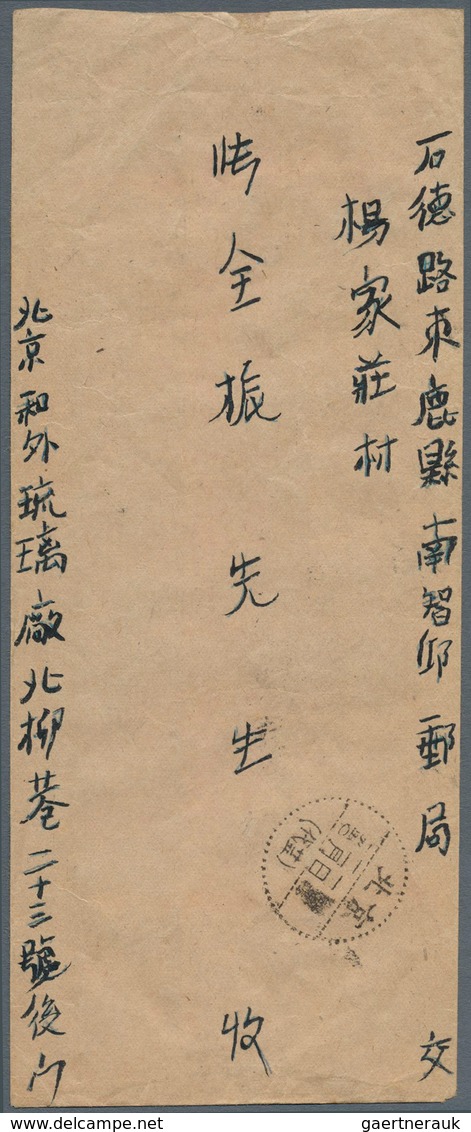 石德路束鹿縣南智邱郵局 交
楊家莊村
全振先生 收
北京和外琉璃廠北柳巷二十三號後门
北京
gaertnerauk.com